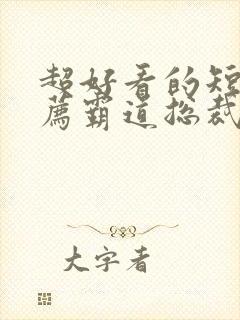 超好看的短
薦霸道总裁
大字者